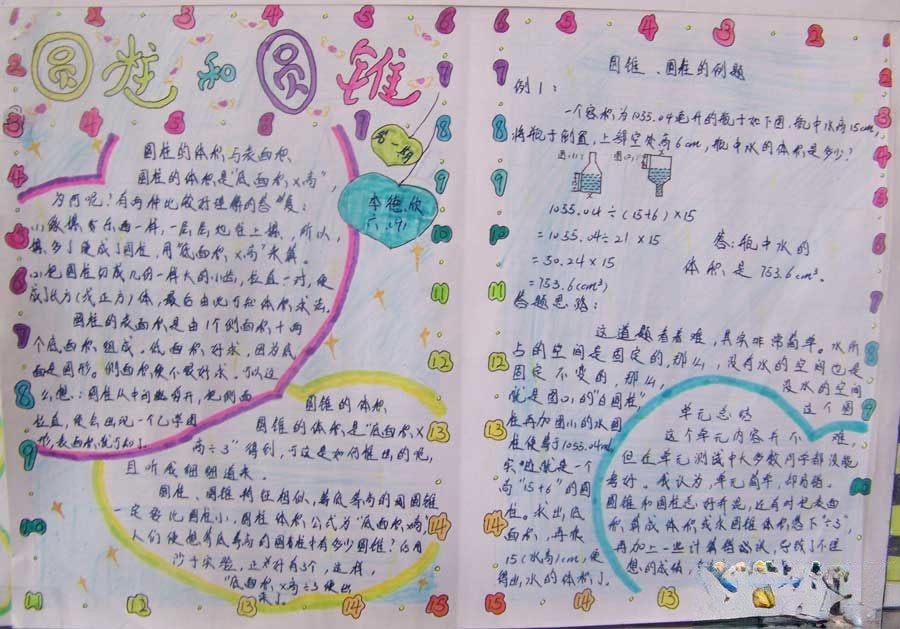 圆柱和圆锥
第一期
李德欣
六.(9)
圆柱的体积与表面积
圆柱的体积是"底面积×高",
为何呢?有两种比较好理解的答复:
一样,一层层地往上摞,所以,
摞多了便成了圆柱,用"底面积×高"来算。
(2)把圆柱切成几份一样大的小齿,拉直一对,便
成了长方(或正方)体,最后由此可知体积求法。
圆柱的表面积是由1个侧面积+两
个底面积组成。底面积好求,因为底
面是圆形。侧面积便不很好求。可以这
么想:圆柱从中间 剪开,把侧面
拉直,便会出现一个几何图
形,表面积就可知了
圆锥的体积
圆锥的体积是"底面积×
高÷3"得到,可这是如何推出的呢,
且听我细细道来。
圆柱、圆锥特征相似,等底等高的圆锥
一定要比圆柱小,圆柱体积公式为"底面积×高",
人们便想等底等高的圆柱中有多少圆锥?
沙子实验,正好有3个,这样,
"底面积×高÷3"便出
来了。
圆锥、圆柱的例题
例1:
一个容积为1055.04毫升的瓶子如下图,瓶中水高15cm,
将瓶子倒置,上部空处高6cm,瓶中水的体积是多少?
图(1):
图(2):
1055.04÷(15+6)×15
=1055.04÷21×15
=50.24×15
=753.6(cm³)
答:瓶中水的
体积是753.6cm³。
答题思路:
这道题看着难,其实非常简单。水所
占的空间是固定的,那么,没有水的空间也是
固定不变的,那么,没水的空间
就是图(2)的"白圆柱",这个圆
柱再加图(1)的水圆
柱便等于1055.04ml,
实际就是一个
高"15+6"的圆
柱。求出底
面积,再乘
15(水高)cm,便
得出,水的体积了。
单元总结
这个单元内容并不难,
但在单元测试中大多数同学都没能
考好。我认为,单元简单,却易错。
圆锥和圆柱总好弄混,还有时把表面
积算成体积或求圆锥体积忘了"÷3",
再加上一些计算错误,导致了不理
想的成绩,